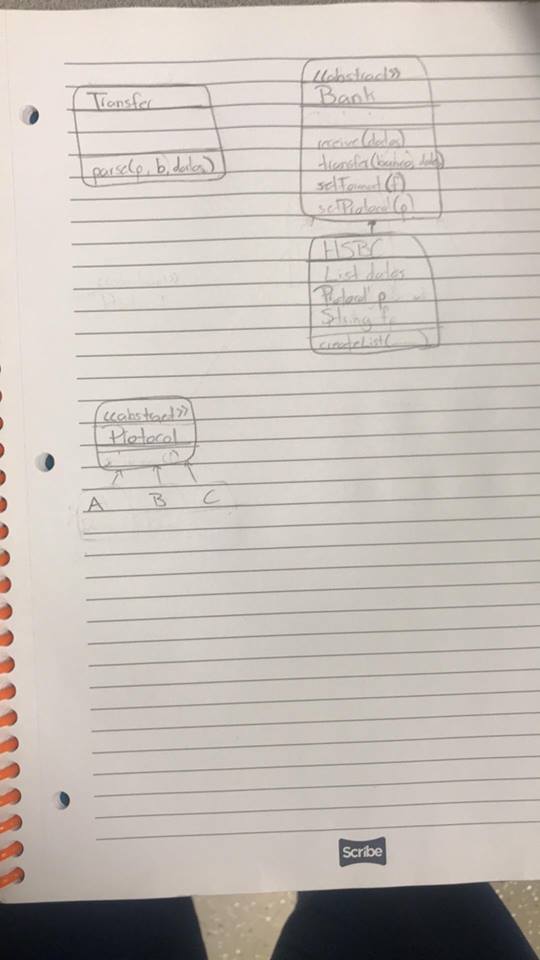 Transfer
parse(p, b, datos)
<<abstract>>
Bank
receive(datos)
transfer(banco, datos)
setFormat(f)
setProtocol(p)
HSBC
List datos
Protocol p
String f
createList(
<<abstract>>
Protocol
A B C
Scribe